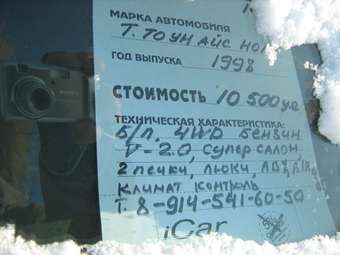 МАРКА АВТОМОБИЛЯ
Т. ТОУН АЙС НОА
ГОД ВЫПУСКА 1998
СТОИМОСТЬ 10 500 у.е
ТЕХНИЧЕСКАЯ ХАРАКТЕРИСТИКА:
Б/П, 4WD БЕНЗИН
V-2.0, СУПЕР САЛОН,
2 ПЕЧКИ, ЛЮКИ,
КЛИМАТ КОНТРОЛЬ
Т. 8-914-541-60-50
iCar